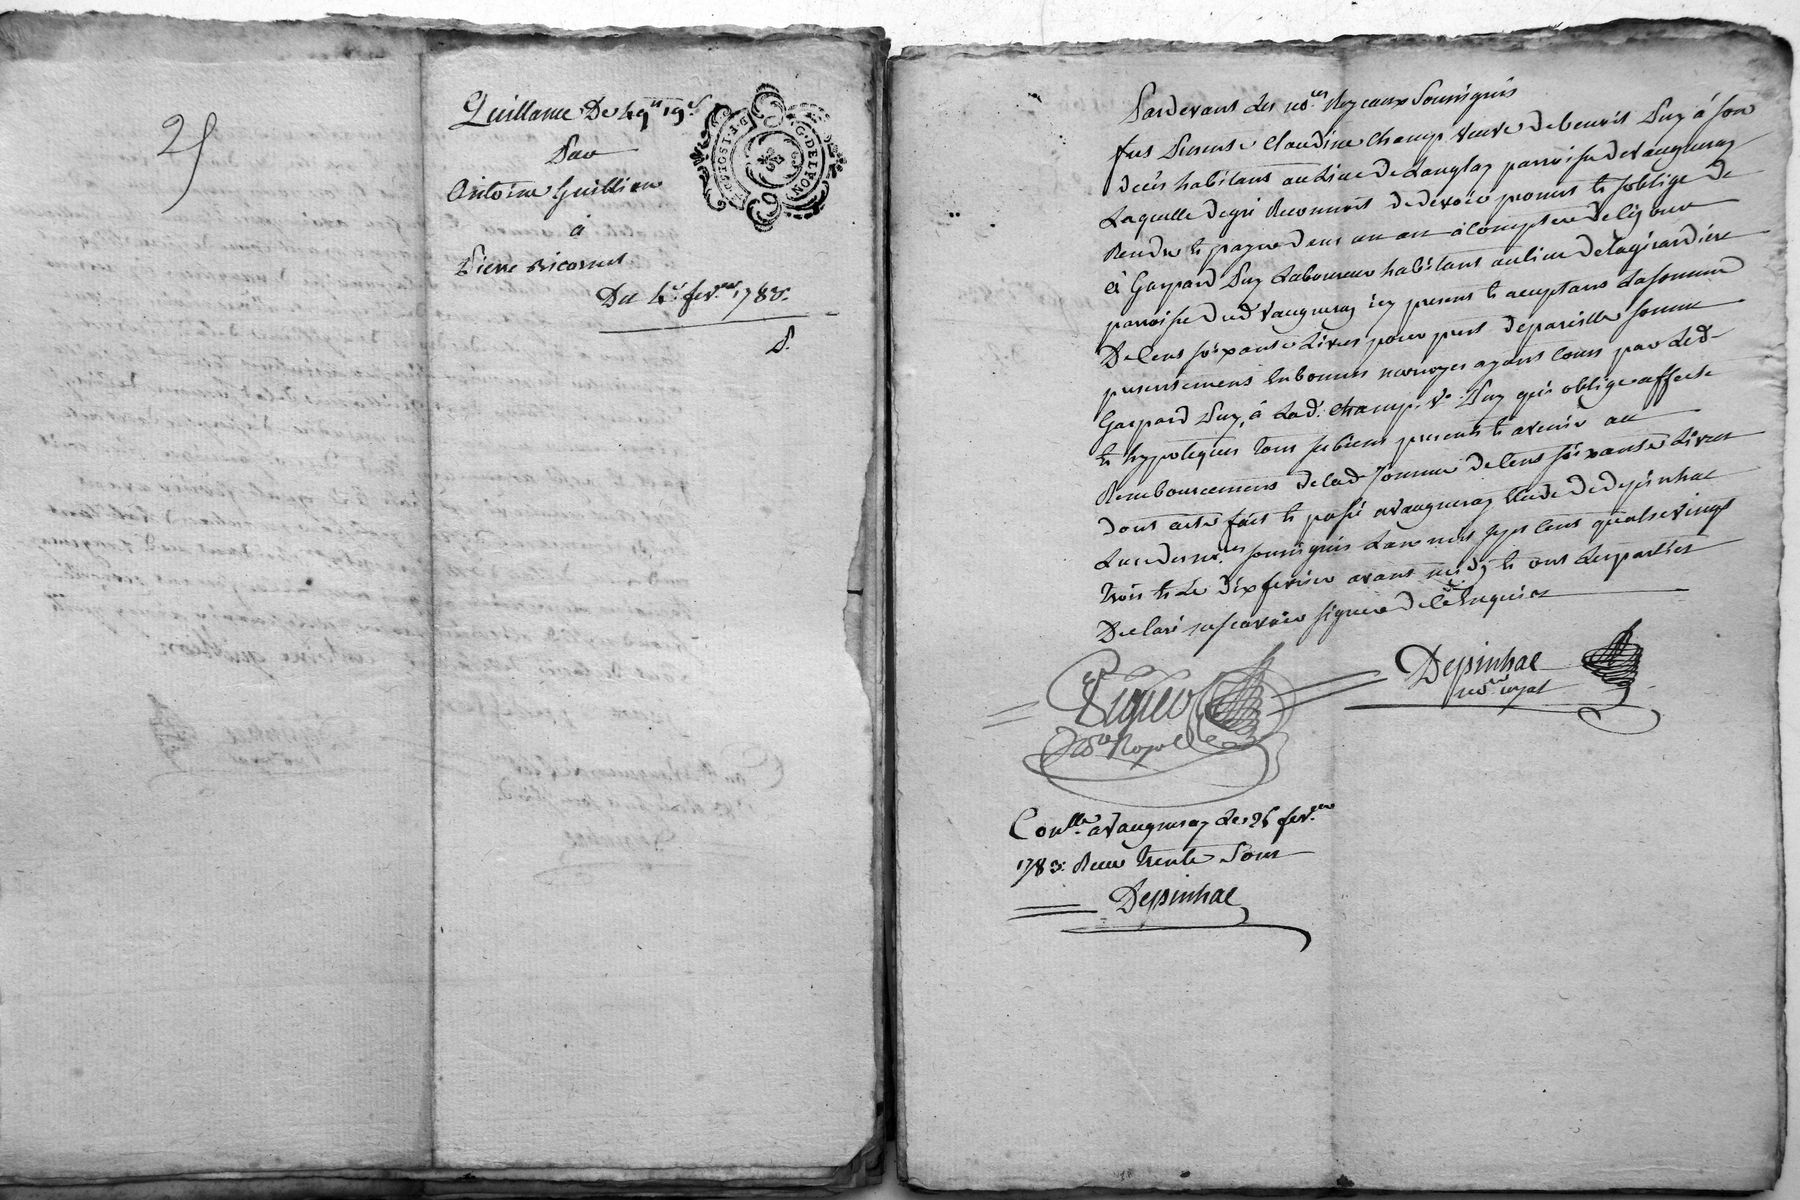 25
Quittance De 49ᵗᵗ 19ˢ
Par
Antoine Guillion
à
Pierre Bricornet
Du 4ᵉ fevʳᵉʳ 1783.
D.
G. DE LYON
Pardevant Les noʳᵉˢ Royeaux Soussignés
fut Presente Claudine Champ veuve de benoit Puy à Son
deces habitant au Lieu De Lanylay parroisse de Vaugneray
Laquelle de gré Reconnoit de devoir promet et soblige de
Rendre et payer dans un an à Compter de Ce jour
à Gaspard Puy Laboureur habitant au lieu de la girardiere
parroisse dud Vaugneray icy present et acceptant La somme
De Cent soixante Livres pour pret de pareille somme
presentement En bonnes monoyes ayant Cours par Led
Gaspard Puy, à Lad. Champ, vᵉ. Puy qui oblige affecte
et hypoteque tous ses biens presents et avenir au
Remboursement de Lad. somme de Cent soixante Livres
dont acte fait et passé a Vaugneray Etude De depinhac
Lun desnoʳᵉˢ soussignés Lan mil sept Cent quatrevingt
trois et Le dix fevrier avant midy et ont Les parties
Declaré ne scavoir signer de Ce Enquises
Depinhac
noʳᵉ royal
noʳᵉ Royal
Conᵗˡˡᵉ a Vaugneray Le 25 fevʳᵉʳ
1783. Reçu trente Sous
Depinhac